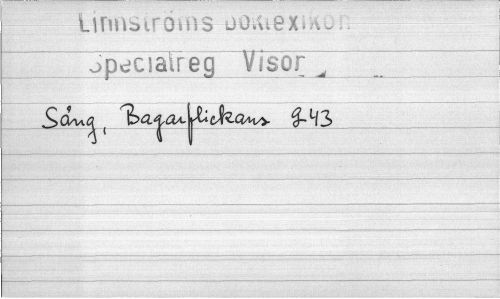 Linnströms Boklexikon
Specialreg Visor
Sång, Bagarflickans 943